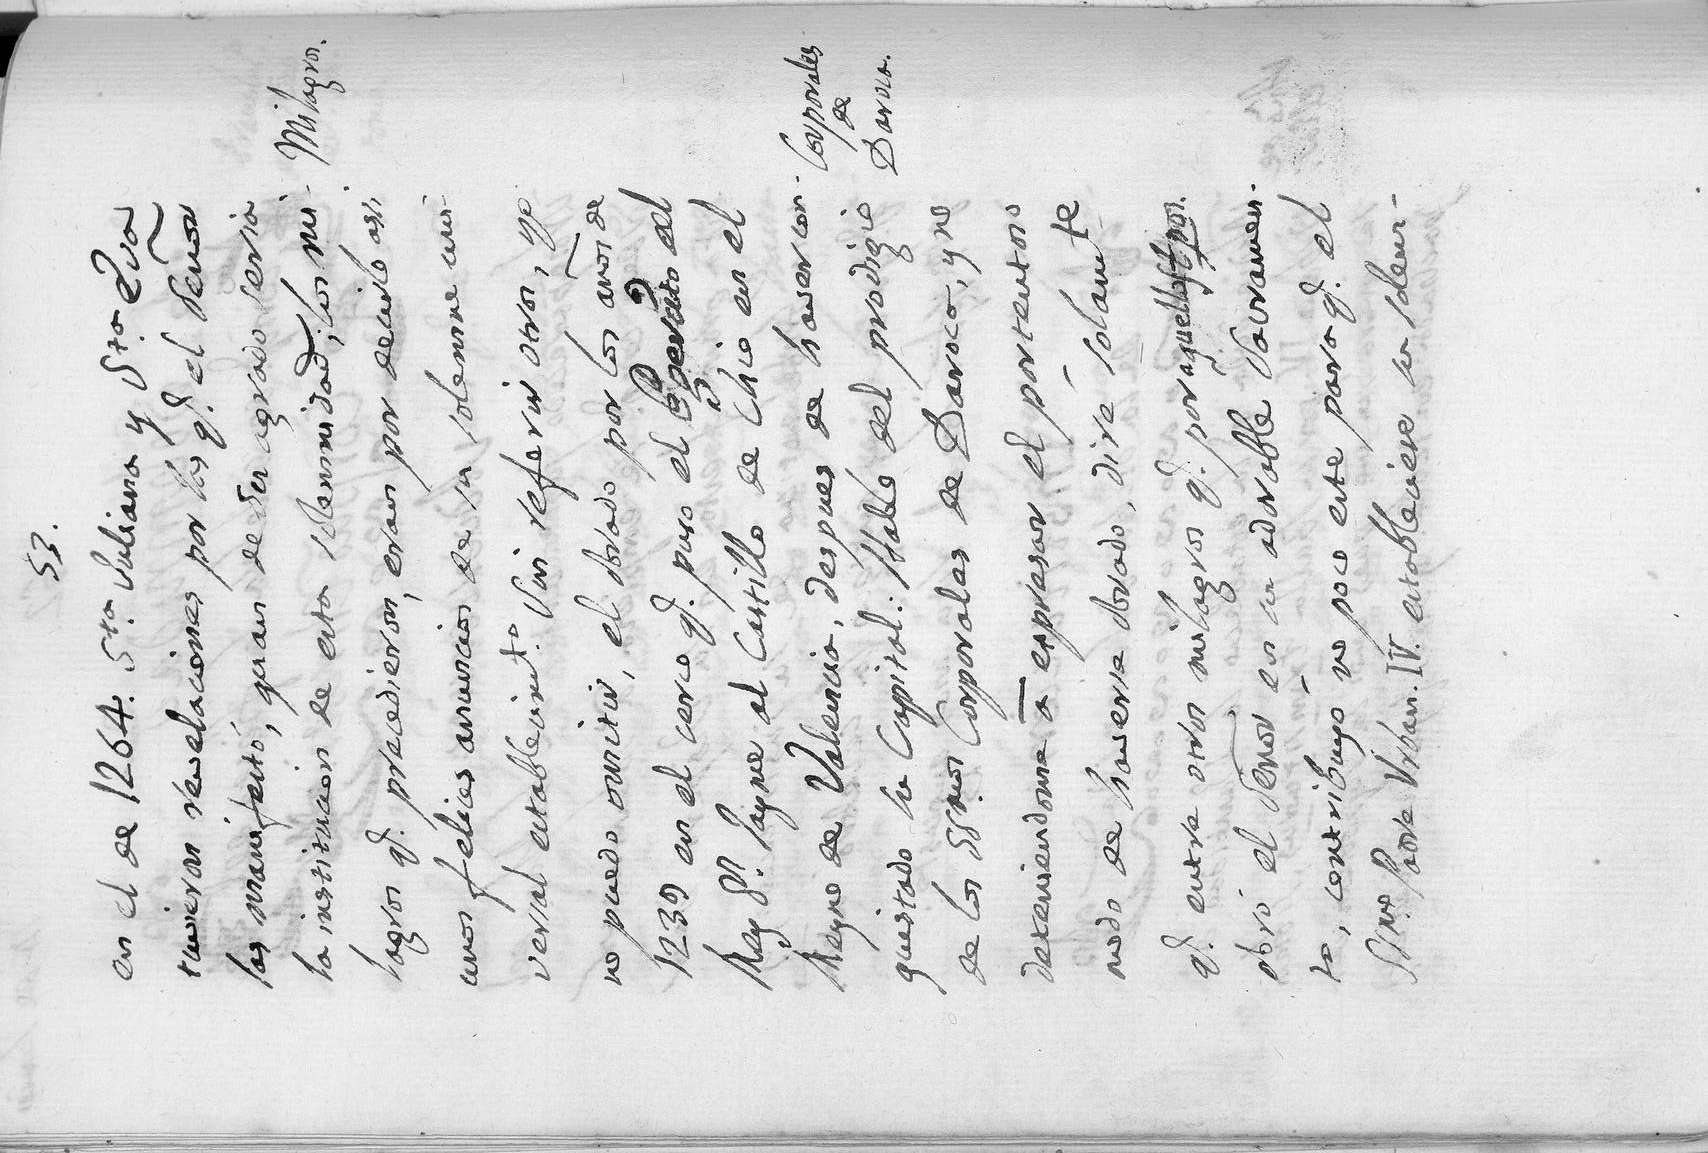 53.
en el de 1264. Sta. Juliana y Sta. Eva
tuvieron revelaciones por las q.e el Señor
las manifestó, quan de su agrado seria
la institucion de esta solemnidad; los mi-
Milagros.
lagros q.e precedieron, eran por decirlo asi
unos felices anuncios de su solemne uni-
versal establecimto. Sin referir otros, q.e
no puedo omitir, el obrado por los años de
1239 en el cerco q.e puso el del
Rey Dn. Jayme al Castillo de Chio en el
Reyno de Valencia, despues de haver con-
quistado su Capital: Hablo del prodigio
Corporales
de
Daroca.
de los SSmos. Corporales de Daroca, y no
deteniendome a expresar el portentoso
modo de haverse obrado, dire solamte
q.e entre otros milagros q.e por aquellos tpos.
obró el Señor en su adorable Sacramen-
to, contribuyó no poco este para q.e el
SSmo. Padre Urban. IV. estableciese la solem-